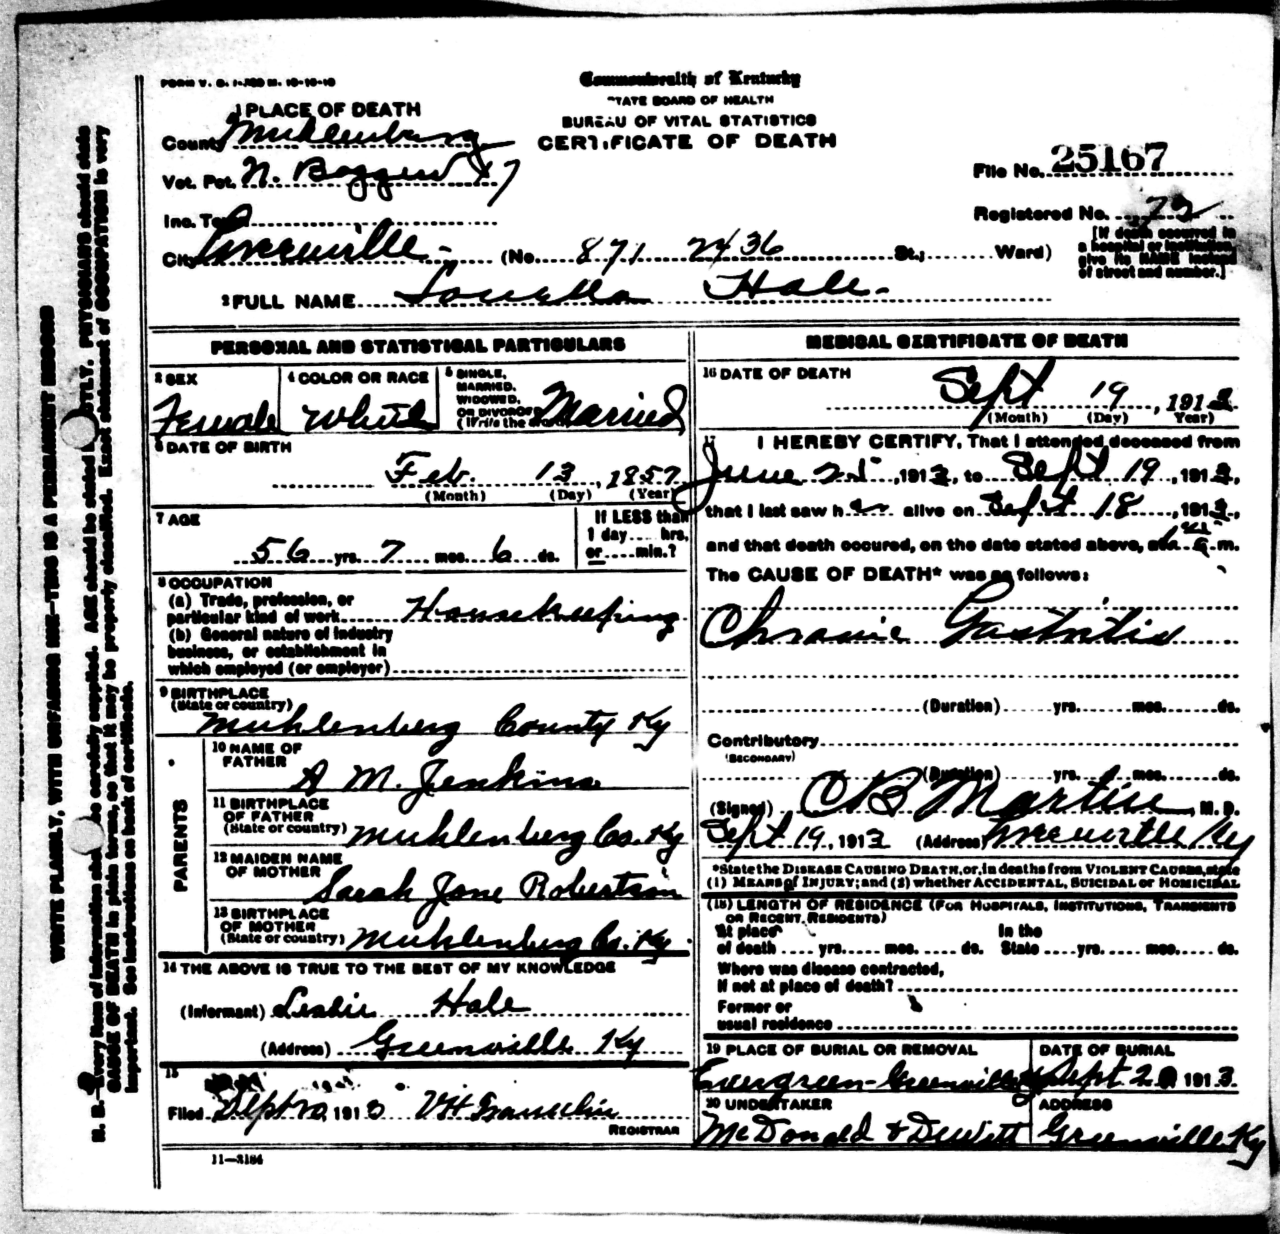 FORM V. S. 1-
Commonwealth of Kentucky
STATE BOARD OF HEALTH
BUREAU OF VITAL STATISTICS
CERTIFICATE OF DEATH
1 PLACE OF DEATH
County Muhlenburg
Vot. Pct. N.
Inc. Town
City Greenville (No. 871 2436 St.; Ward)
File No. 25167
Registered No. 72
[If death occurred in a hospital or institution, give its NAME instead of street and number.]
2 FULL NAME Louella Hale
PERSONAL AND STATISTICAL PARTICULARS
3 SEX Female
4 COLOR OR RACE White
5 SINGLE, MARRIED, WIDOWED, OR DIVORCED (Write the word) Married
6 DATE OF BIRTH
Feb. 13, 1857
(Month) (Day) (Year)
7 AGE
56 yrs. 7 mos. 6 ds.
If LESS than 1 day.... hrs. or ....min.?
8 OCCUPATION
(a) Trade, profession, or particular kind of work Housekeeping
(b) General nature of industry business, or establishment in which employed (or employer)
9 BIRTHPLACE
(State or country)
Muhlenberg County Ky
PARENTS
10 NAME OF FATHER
A M. Jenkins
11 BIRTHPLACE OF FATHER
(State or country) Muhlenberg Co. Ky
12 MAIDEN NAME OF MOTHER
Sarah Jane Robertson
13 BIRTHPLACE OF MOTHER
(State or country) Muhlenberg Co. Ky
14 THE ABOVE IS TRUE TO THE BEST OF MY KNOWLEDGE
(Informant) Leslie Hale
(Address) Greenville Ky
15
Filed Sept 20, 1913
REGISTRAR
11—3184
MEDICAL CERTIFICATE OF DEATH
16 DATE OF DEATH
Sept 19, 1913
(Month) (Day) Year)
17 I HEREBY CERTIFY, That I attended deceased from
June 25, 1913, to Sept 19, 1913,
that I last saw her alive on Sept 18, 1913,
and that death occured, on the date stated above, at m.
The CAUSE OF DEATH* was as follows:
Chronic Gastritis
(Duration) yrs. mos. ds.
Contributory
(SECONDARY)
(Duration) yrs. mos. ds.
(Signed) C B Martin, M. D.
Sept 19, 1913 (Address) Greenville Ky
*State the DISEASE CAUSING DEATH, or, in deaths from VIOLENT CAUSES, state
(1) MEANS of INJURY; and (2) whether ACCIDENTAL, SUICIDAL or HOMICIDAL
(18) LENGTH OF RESIDENCE (FOR HOSPITALS, INSTITUTIONS, TRANSIENTS OR RECENT RESIDENTS)
At place of death yrs. mos. ds. In the State yrs. mos. ds.
Where was disease contracted,
If not at place of death?
Former or
usual residence
19 PLACE OF BURIAL OR REMOVAL
Evergreen-Greenville Ky
DATE OF BURIAL
Sept 20 1913
20 UNDERTAKER
McDonald & Dewitt
ADDRESS
Greenville Ky
WRITE PLAINLY, WITH UNFADING INK—THIS IS A PERMANENT RECORD
N. B.—Every item of information should be carefully supplied. AGE should be stated EXACTLY. PHYSICIANS should state
CAUSE OF DEATH in plain terms, so that it may be properly classified. Exact statement of OCCUPATION is very
important. See instructions on back of certificate.